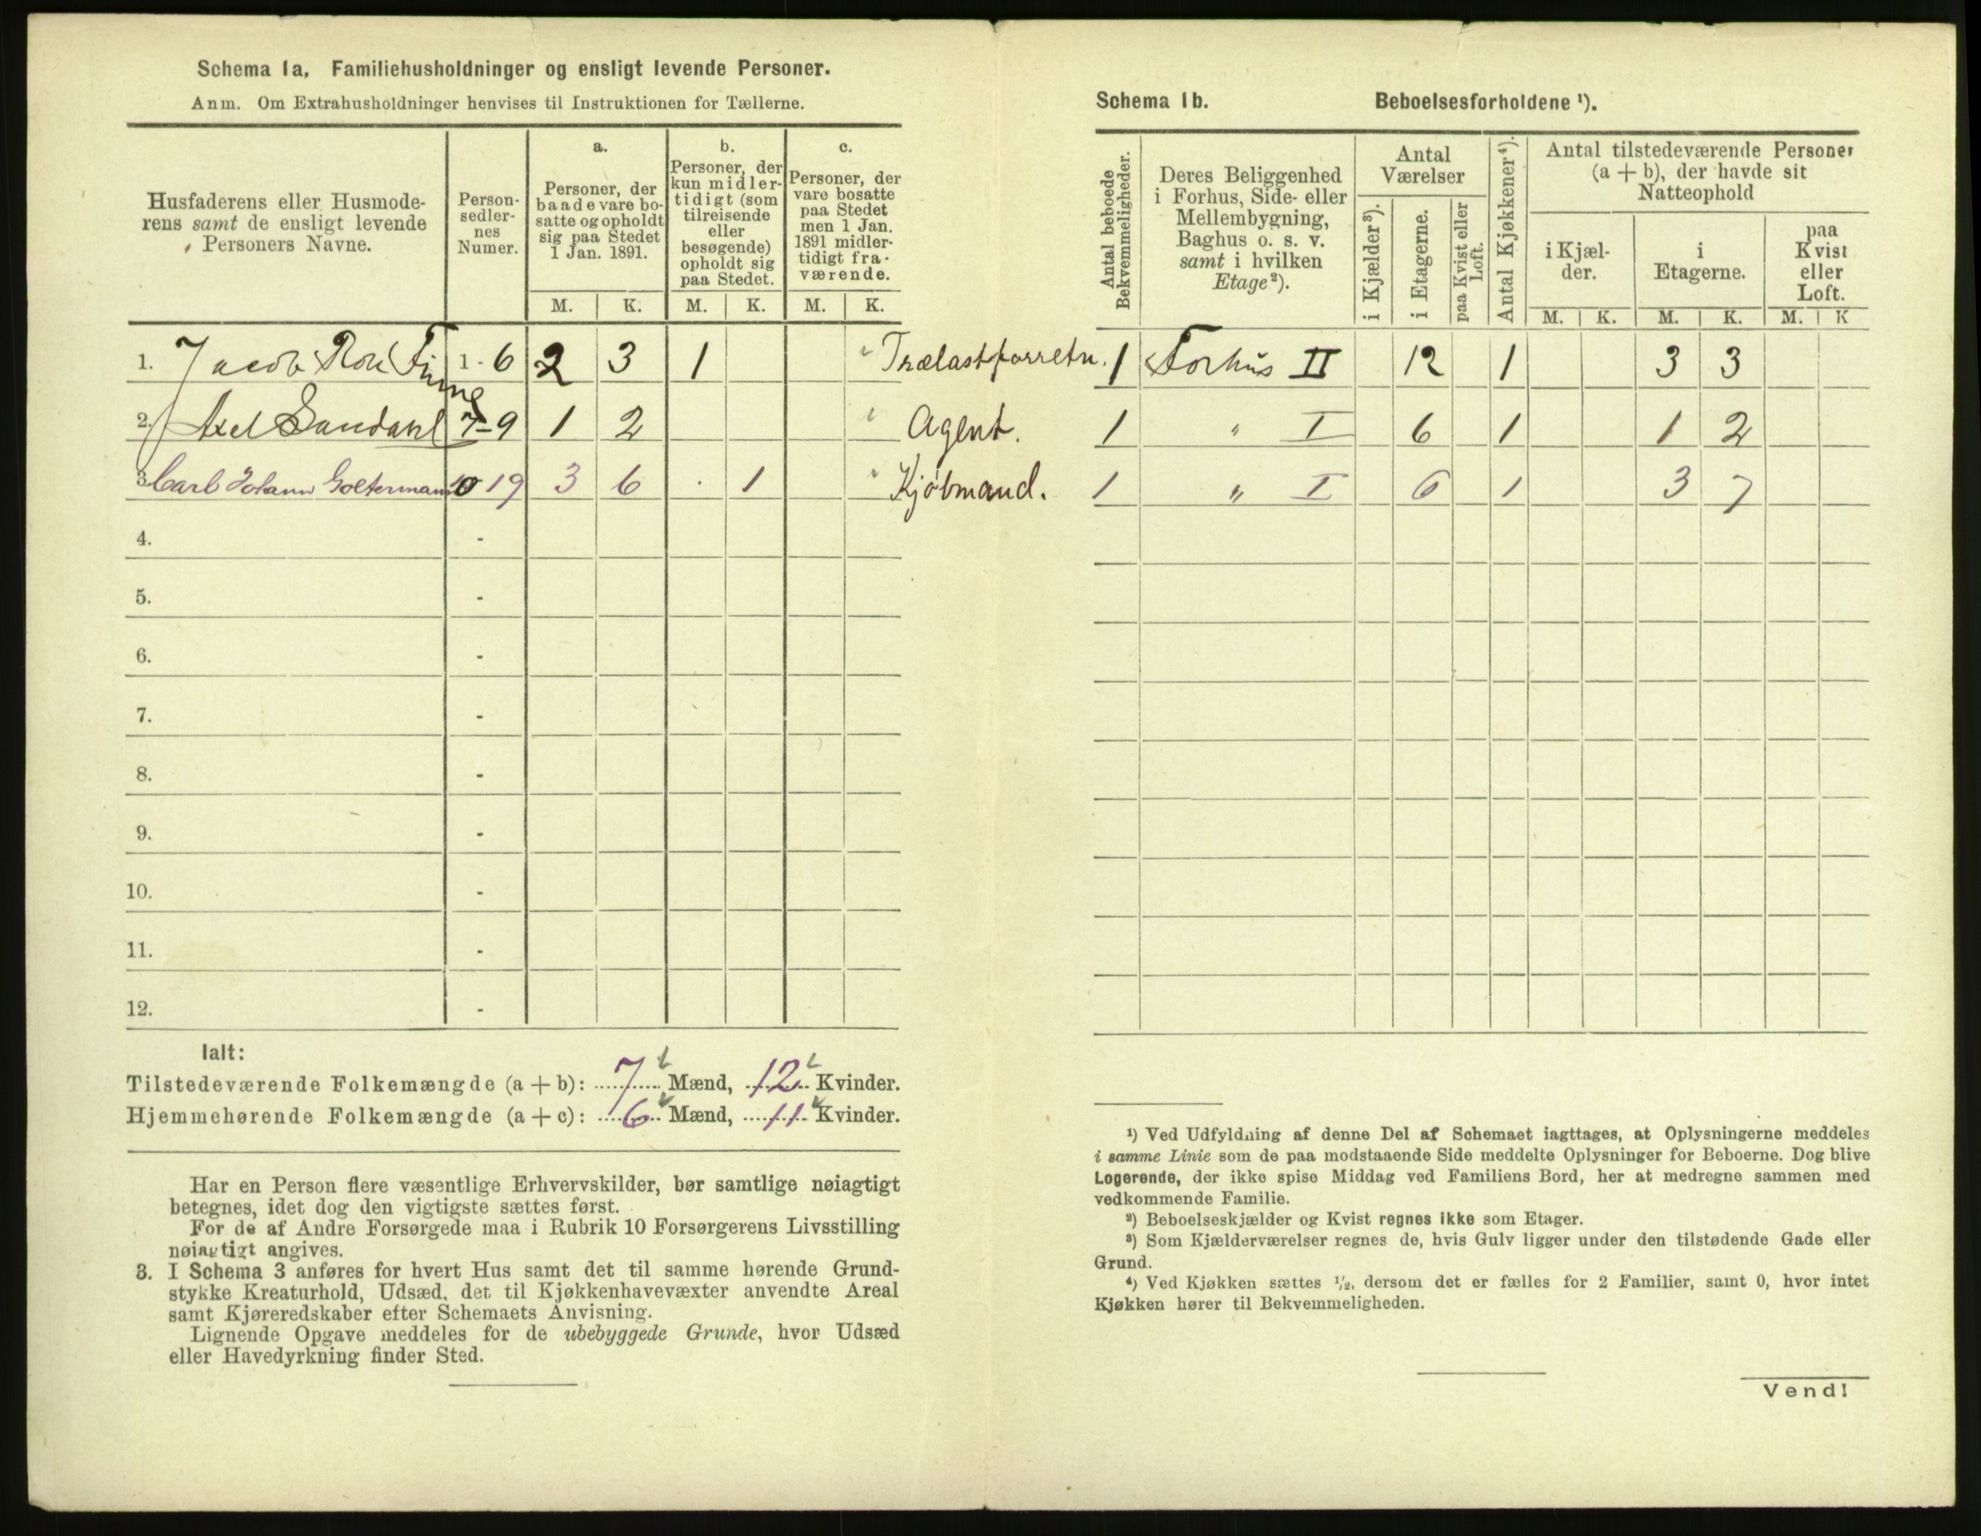 Schema 1a. Familiehusholdninger og ensligt levende Personer.
Anm. Om Extrahusholdninger henvises til Instruktionen for Tællerne.
Husfaderens eller Husmode-
rens samt de ensligt levende
Personers Navne.
Person-
sedler-
nes
Numer.
a.
Personer, der
baade vare bo-
satte og opholdt
sig paa Stedet
1 Jan. 1891.
b.
Personer, der
kun midler-
tidigt (som
tilreisende
eller
besøgende)
opholdt sig
paa Stedet.
c.
Personer, der
vare bosatte
paa Stedet
men 1 Jan.
1891 midler-
tidigt fra-
værende.
M. K. M. K. M. K.
1. Jacob Finne 1-6 2 3 1 Trælastforretn.
2. Axel Sandahl 7-9 1 2 Agent.
3. Carl Johann Goltermann 10 19 3 6 · 1 Kjøbmand.
4. -
5. -
6. -
7. -
8. -
9. -
10. -
11. -
12. -
Ialt:
Tilstedeværende Folkemængde (a + b): 7 Mænd, 12 Kvinder.
Hjemmehørende Folkemængde (a + c): 6 Mænd, 11 Kvinder.
Har en Person flere væsentlige Erhvervskilder, bør samtlige nøiagtigt
betegnes, idet dog den vigtigste sættes først.
For de af Andre Forsørgede maa i Rubrik 10 Forsørgerens Livsstilling
nøiagtigt angives.
3. I Schema 3 anføres for hvert Hus samt det til samme hørende Grund-
stykke Kreaturhold, Udsæd, det til Kjøkkenhavevæxter anvendte Areal
samt Kjøreredskaber efter Schemaets Anvisning.
Lignende Opgave meddeles for de ubebyggede Grunde, hvor Udsæd
eller Havedyrkning finder Sted.
Schema 1b. Beboelsesforholdene ¹).
Antal beboede
Bekvemmeligheder.
Deres Beliggenhed
i Forhus, Side- eller
Mellembygning,
Baghus o. s. v.
samt i hvilken
Etage²).
Antal
Værelser
i Kjælder³).
i Etagerne.
paa Kvist eller
Loft.
Antal Kjøkkener⁴).
Antal tilstedeværende Personer
(a + b), der havde sit
Natteophold
i Kjæl-
der.
i
Etagerne.
paa
Kvist
eller
Loft.
M. K. M. K. M. K
1 Forhus II 12 1 3 3
1 " I 6 1 1 2
1 " I 6 1 3 7
¹) Ved Udfyldning af denne Del af Schemaet iagttages, at Oplysningerne meddeles
i samme Linie som de paa modstaaende Side meddelte Oplysninger for Beboerne. Dog blive
Logerende, der ikke spise Middag ved Familiens Bord, her at medregne sammen med
vedkommende Familie.
²) Beboelseskjælder og Kvist regnes ikke som Etager.
³) Som Kjælderværelser regnes de, hvis Gulv ligger under den tilstødende Gade eller
Grund.
⁴) Ved Kjøkken sættes ¹/₂, dersom det er fælles for 2 Familier, samt 0, hvor intet
Kjøkken hører til Bekvemmeligheden.
Vend!